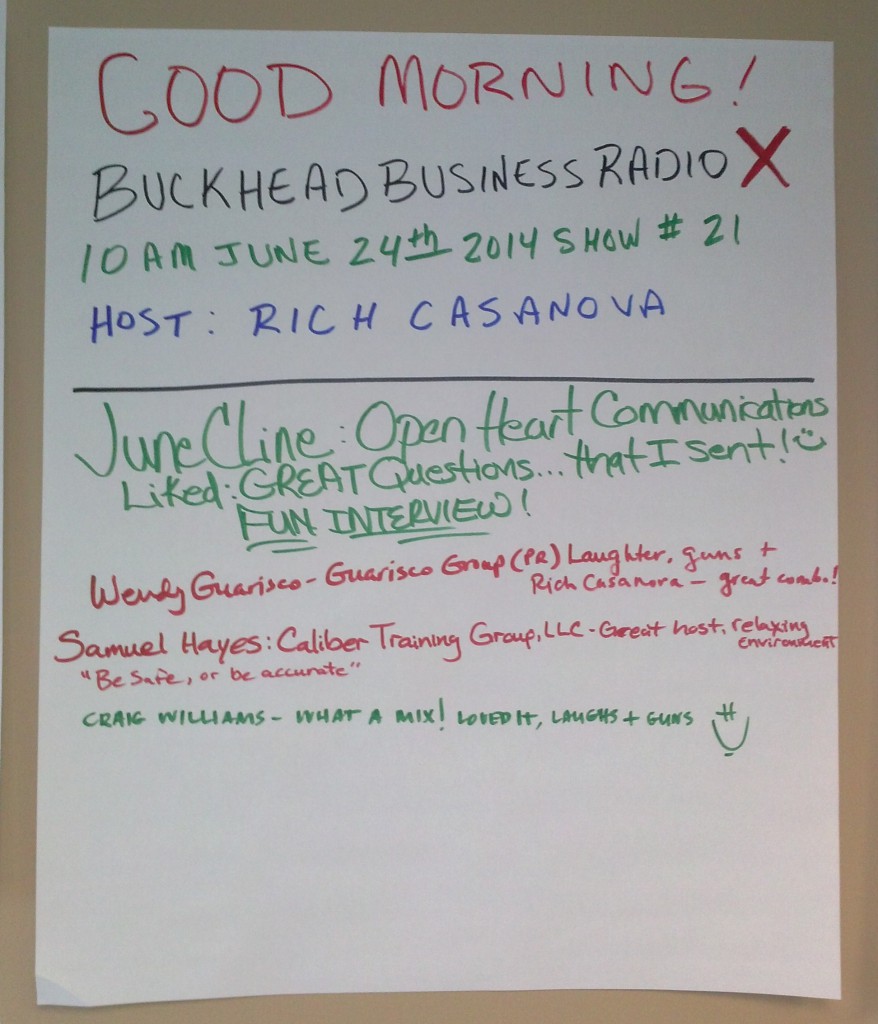 GOOD MORNING!
BUCKHEAD BUSINESS RADIO X
10 AM JUNE 24th 2014 SHOW # 21
HOST: RICH CASANOVA
June Cline: Open Heart Communications
Liked: GREAT Questions... that I sent!
FUN INTERVIEW!
Wendy Guarisco - Guarisco Group (PR) Laughter, guns +
Rich Casanova - great combo!
Samuel Hayes: Caliber Training Group, LLC - Great host, relaxing
environment
"Be Safe, or be accurate"
CRAIG WILLIAMS - WHAT A MIX! LOVED IT, LAUGHS + GUNS